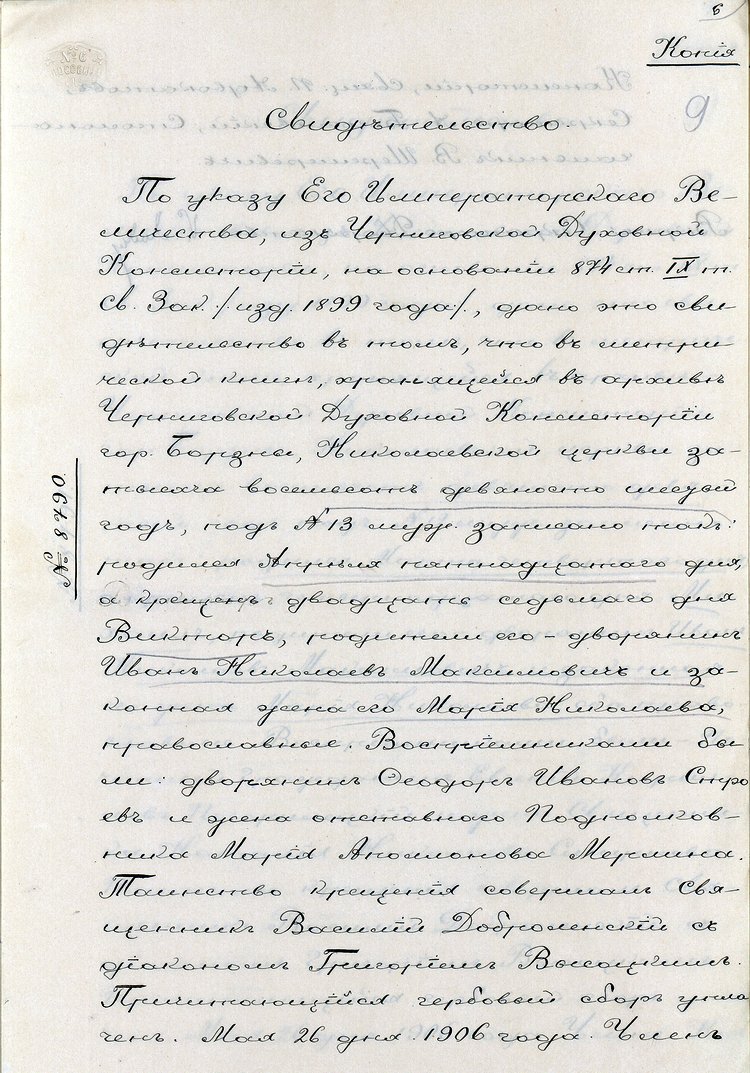 6
Копія
9
Свидѣтельство.
По указу Его Императорскаго Ве-
личества, изъ Черниговской Духовной
Консисторіи, на основаніи 874 ст. IX т.
Св. Зак. /изд. 1899 года/, дано это сви
дѣтельство въ томъ, что въ метри
ческой книгѣ, хранящейся въ архивѣ
Черниговской Духовной Консисторіи
гор. Борзны, Николаевской церкви за-
тысяча восемьсотъ девяносто шестый
годъ, подъ № 13 муж. записано такъ:
родился Апрѣля пятнадцатаго дня,
а крещенъ двадцать седьмаго дня
Викторъ, родители его - дворянинъ
Иванъ Николаевъ Максимовичъ и за-
конная жена его Марія Николаева,
православные. Воспріемниками бы-
ли: дворянинъ Ѳеодоръ Ивановъ Стро
евъ и жена отставнаго Подполков-
ника Марія Аполлонова Мерлина.
Таинство крещенія совершалъ Свя-
щенникъ Василій Доброленскій съ
діакономъ Григоріемъ Высоцкимъ.
Причитающійся гербовый сборъ упла
ченъ. Мая 26 дня 1906 года. Членъ
№ 8490